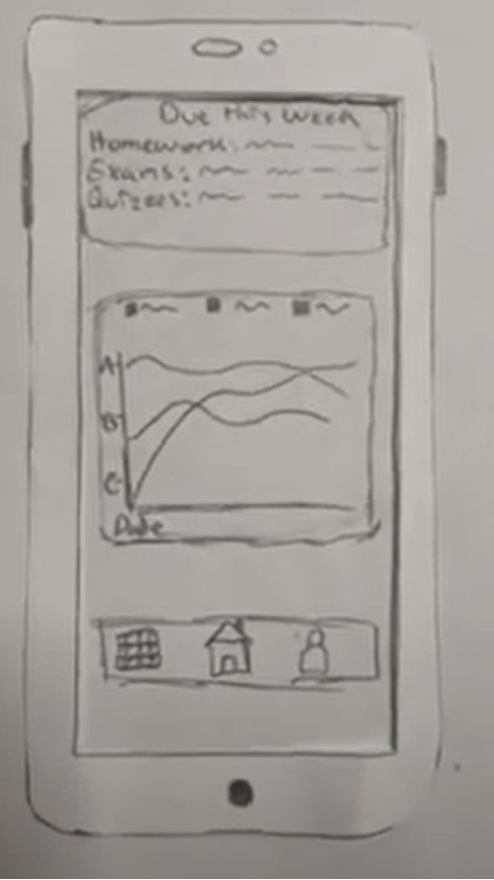 Due this week
Homework:
Exams:
Quizzes:
A
B
C
Date